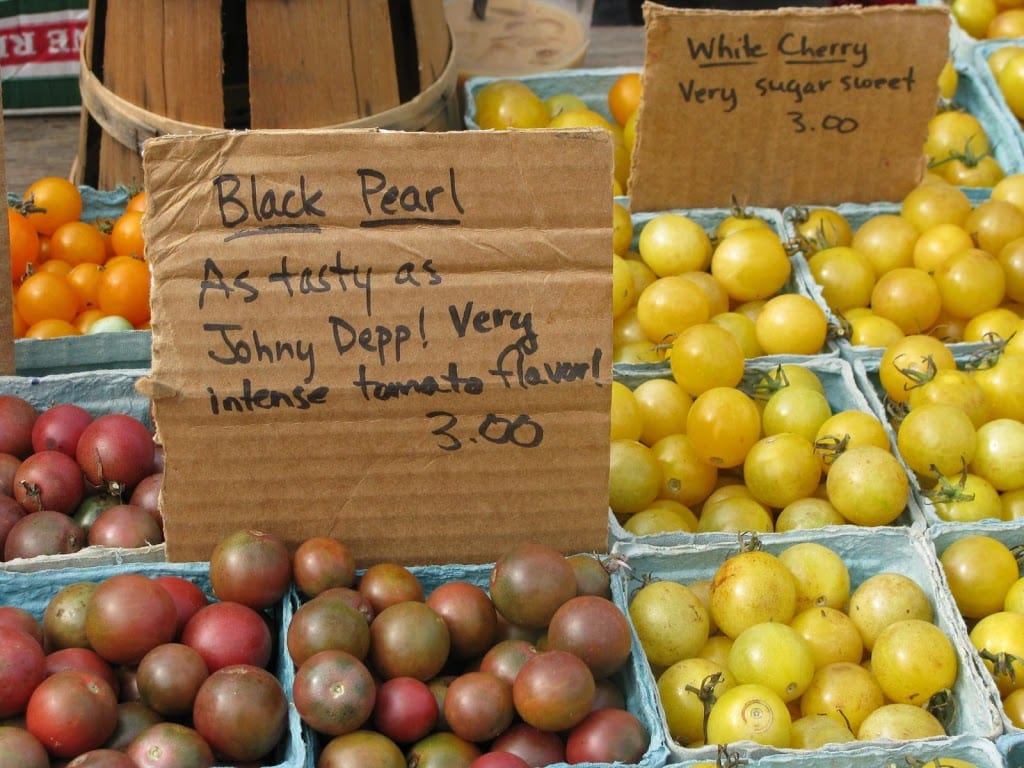 NE RI
White Cherry
Very sugar sweet
3.00
Black Pearl
As tasty as
Johny Depp! Very
intense tomato flavor!
3.00